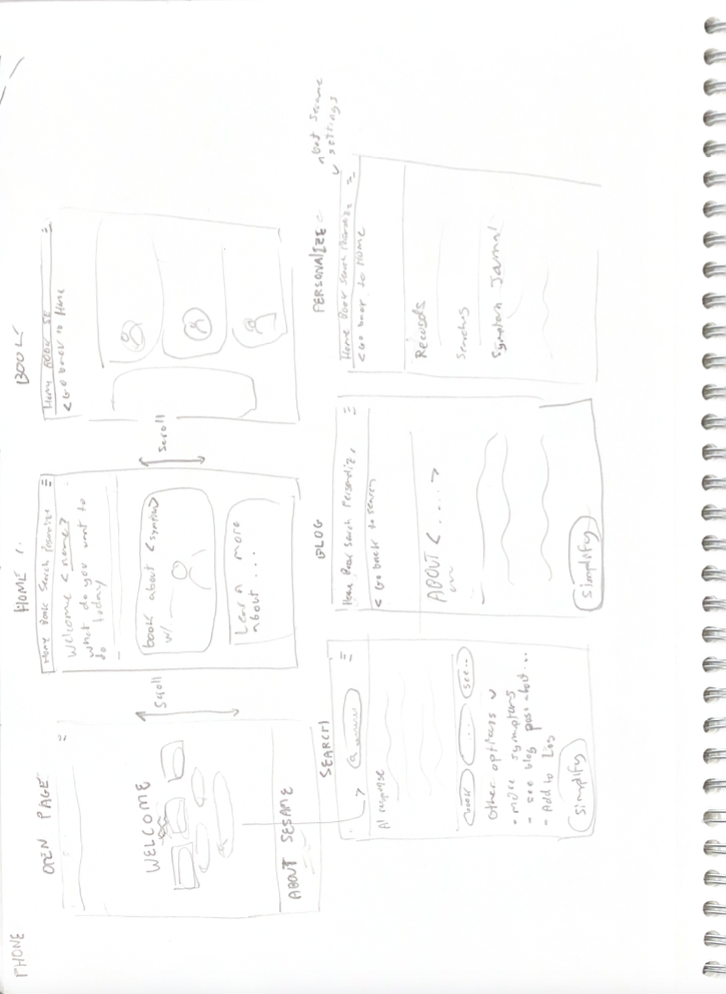 PHONE
OPEN PAGE
WELCOME
ABOUT SESAME
HOME
Home Book Search Personalize
Welcome <name>
what do you want to
do today?
book about <symptom>
w/
Learn more
about...
Scroll
Scroll
BOOK
Home Book Se
< Go back to Home
SEARCH
AI response
book
...
see...
Other options
- more symptoms
- see blog post about...
- Add to Log
Simplify
BLOG
Home Book Search Personalize
< Go back to search
ABOUT <....>
Simplify
PERSONALIZE
about sesame
settings
Home Book Search Personalize
< Go back to Home
Records
Searches
Symptom Jornal